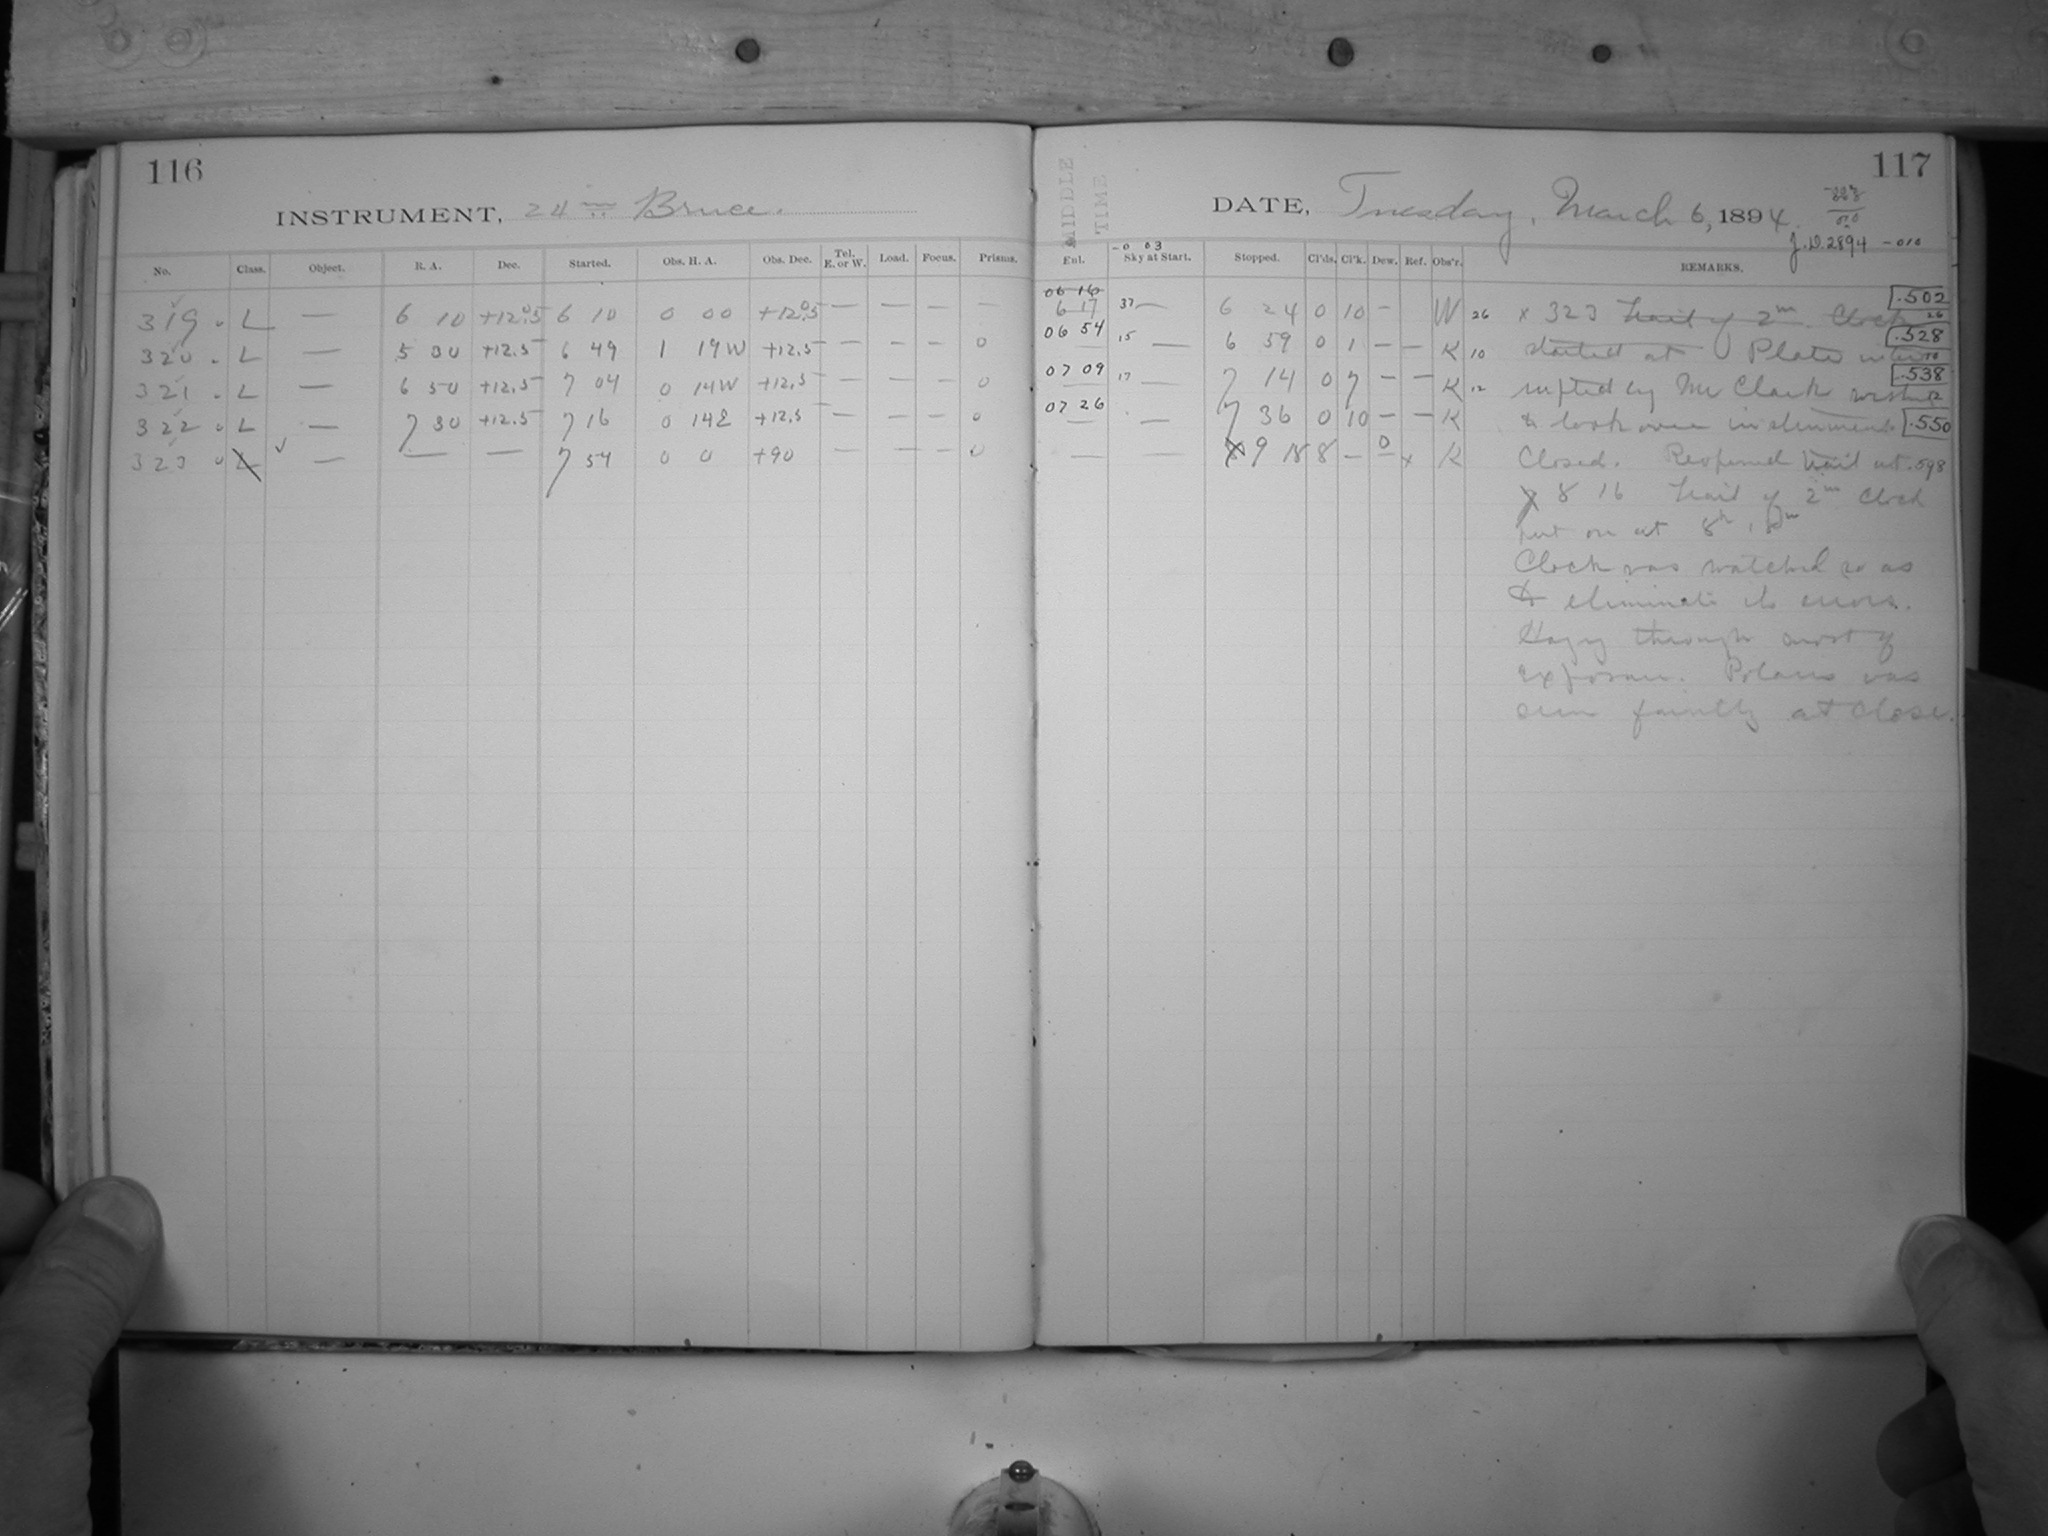 116
INSTRUMENT, 24 in Bruce.
No. Class. Object. R. A. Dec. Started. Obs. H. A. Obs. Dec. Tel. E. or W. Load. Focus. Prisms.
319 . L — 6 10 +12.5 6 10 0 00 +12.5 — — — —
320 . L — 5 30 +12.5 6 49 1 19W +12.5 — — — 0
321 . L — 6 50 +12.5 7 04 0 14W +12.5 — — — 0
322 . L — 7 30 +12.5 7 16 0 14E +12.5 — — — 0
323 . L ✓ — — — 7 54 0 0 +90 — — — 0
117
MIDDLE TIME
DATE, Tuesday, March 6, 1894.
J.D. 2894 -010
-0 03
Enl. Sky at Start. Stopped. Cl'ds. Cl'k. Dew. Ref. Obs'r. REMARKS.
06 16
6 17 37 — 6 24 0 10 — W 26 x 323 Trail of 2m. Clock .502 26
06 54 — 15 — 6 59 0 1 — — K 10 started at Plate inter .528 10
07 09 — 17 — 7 14 0 7 — — K 12 rupted by Mr Clark wishing .538 12
07 26 — — 7 36 0 10 — — K to look over instrument .550
— — 9 18 8 — 0 x K Closed. Reopened trail at .598
8 16 Trail of 2m Clock
put on at 8h
Clock was watched so as
to eliminate its errors.
Hazy through most of
exposure. Polaris was
seen faintly at close.